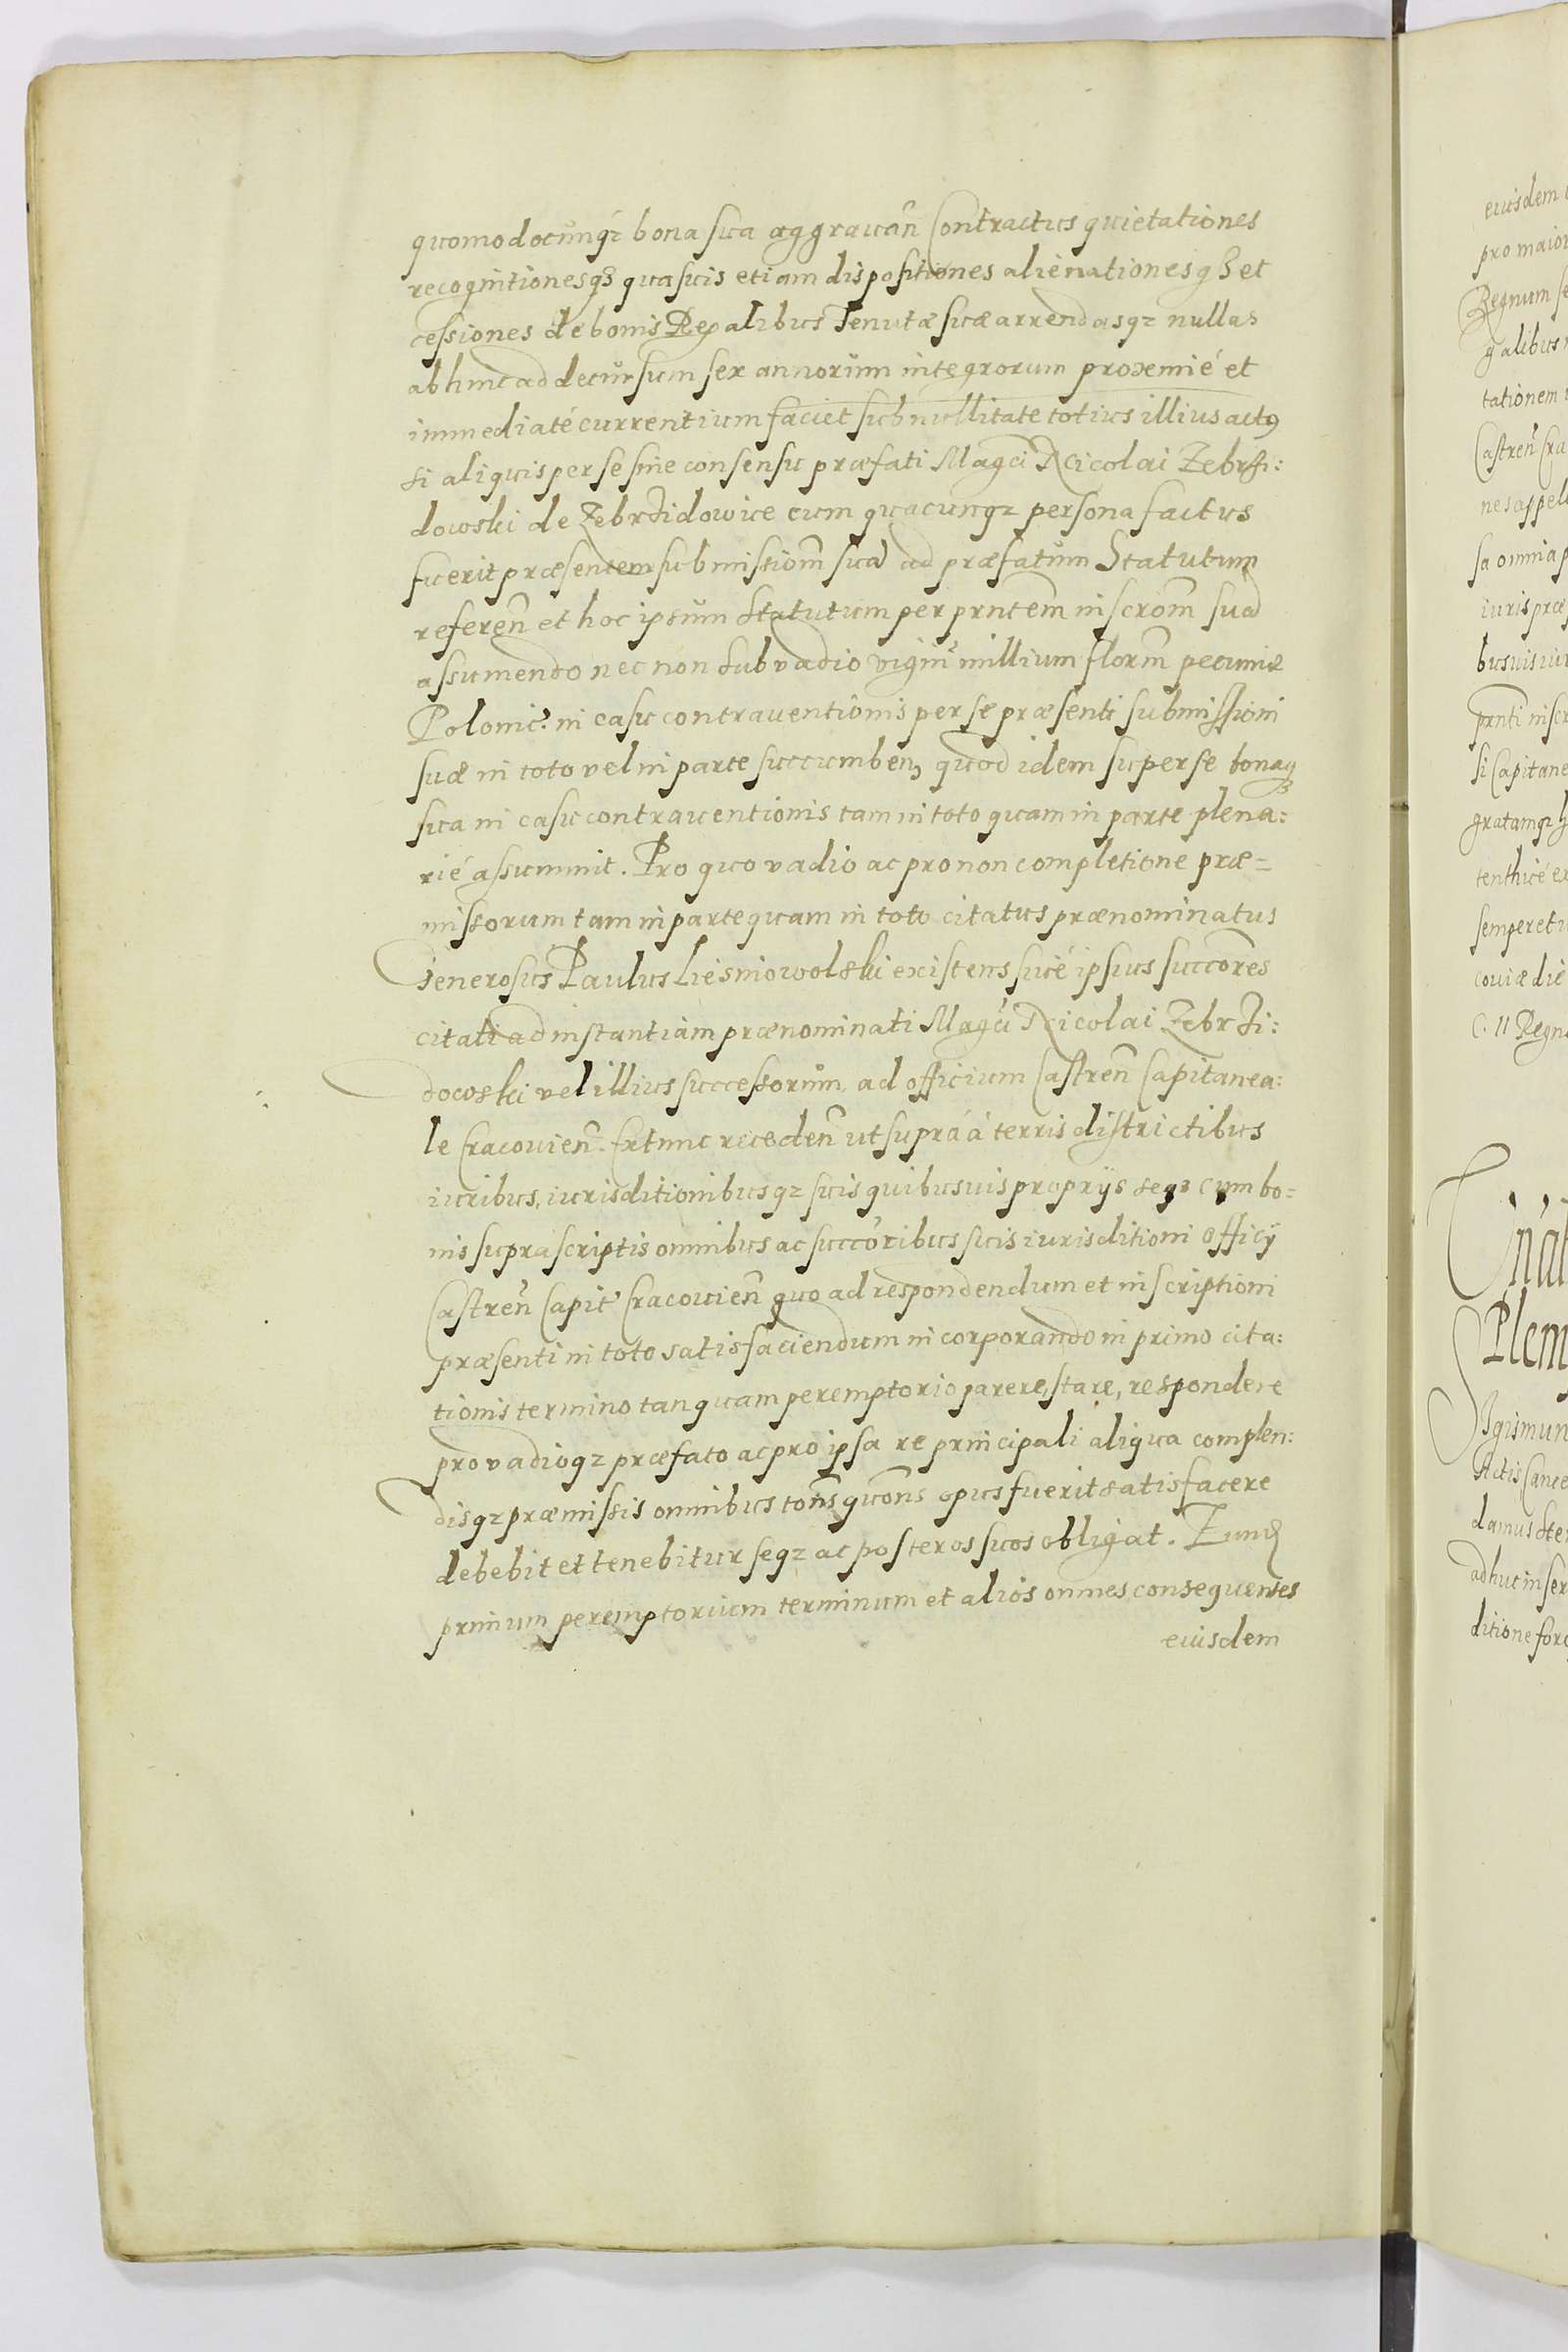 quomodocunqz bona sua aggrauan̄ Contractus quietationes
recognitionesqз quasuis etiam dispositiones alienationesqз et
cessiones de bonis Regalibus Tenutæ suæ arrendasqz nullas
abhinc ad decursum sex annorum integrorum proxemié et
immediaté currentium faciet sub nullitate totius illius actꝰ
si aliquis per se sine consensu præfati Magci Nicolai Zebrzi:
dowski de Zebrzidowice cum quacunqz persona factus
fuerit præsentem submissiom̄ suā ad præfatum Statutum
referen̄ et hoc ipsum Statutum per prntem̄ inscrom̄ suā
assumendo nec non sub vadio viginti millium florm̄ pecuniæ
Polonic. in casu contrauentionis per se præsenti submissioni
suæ in toto vel in parte succumben, quod idem super se bonaqз
sua in casu contrauentionis tam in toto quam in parte plena:
rié assummit. Pro quo vadio ac pro non completione præ=
missorum tam in parte quam in toto citatus prænominatus
Generosus Paulus Liesniowolski existens siue ipsius succores
citati ad instantiam prænominati Magci Nicolai Zebrzi:
dowski vel illius successorum, ad officium Castren̄ Capitanea:
le Cracouien̄. Extunc receden̄ ut supra á terris districtibus
iuribus, iurisditionibusqz suis quibusuis proprijs seqз cum bo=
nis suprascriptis omnibus ac succoribus suis iurisditioni officÿ
Castren̄ Capit Cracouien̄ quo ad respondendum et inscriptioni
præsenti in toto satisfaciendum incorporando in primo cita:
tionis termino tanquam peremptorio parere, stare, respondere
pro vadioqz præfato ac pro ipsa re principali aliqua complen:
disqz præmissis omnibus tons̄ quōns opus fuerit satisfacere
debebit et tenebitur seqz ac posteros suos obligat. Eund
primum peremptorium terminum et alios omnes consequentes
eiusdem
eiusdem
pro maior
Regnum se
galibus
tationem
Castren̄ Cra
nes appell
sa omnia p
iuris præ
busuis iur
prnti inscr
si Capitane
gratamqz h
tenthicé ex
semper et
couiæ die
C. II Regn
Plem
Sigismun
Actis Cance
damus Ste
adhuc inser
ditione for